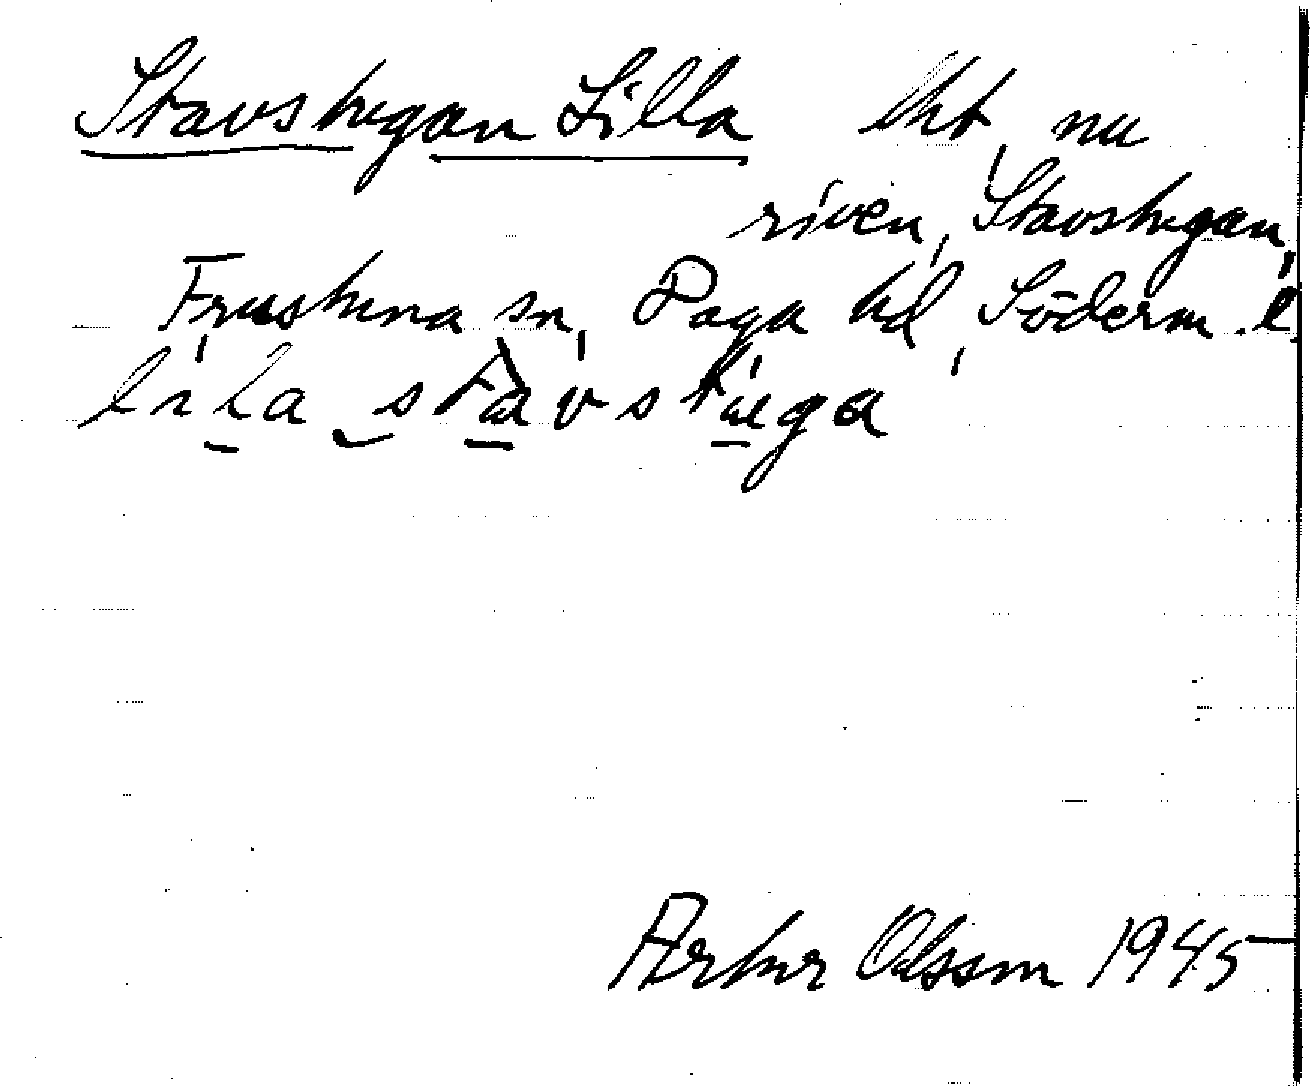 Stavstugan Lilla lht, nu
riven, Stavstugan,
Frustuna sn, Daga hd, Söderm. l.
Artur Olsson 1945